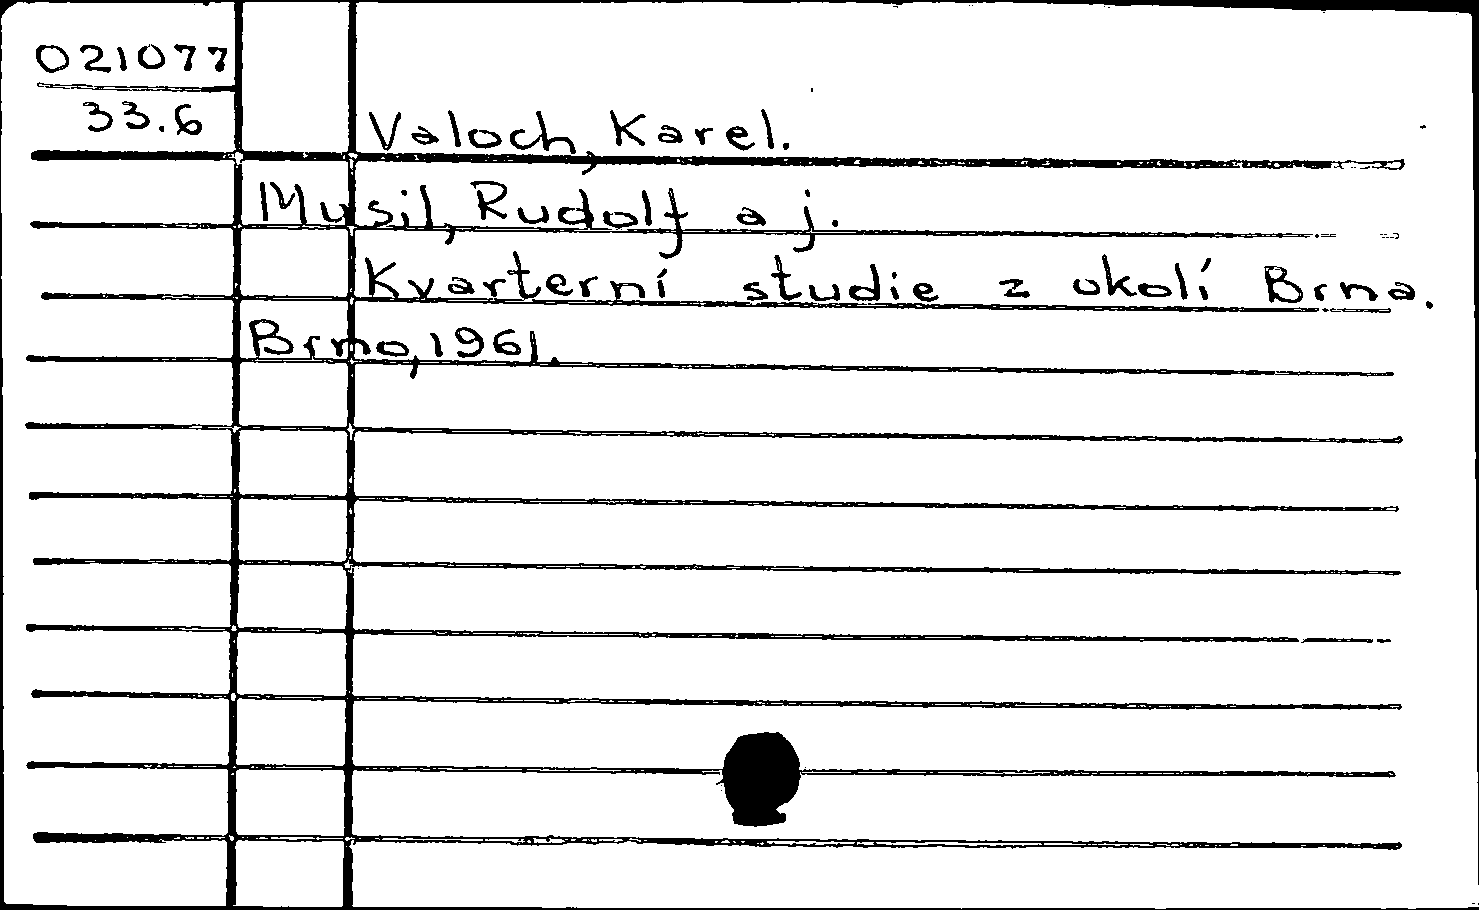 021077
33.6
Valoch, Karel.
Musil, Rudolf a j.
Kvarterní studie z okolí Brna.
Brno, 1961.